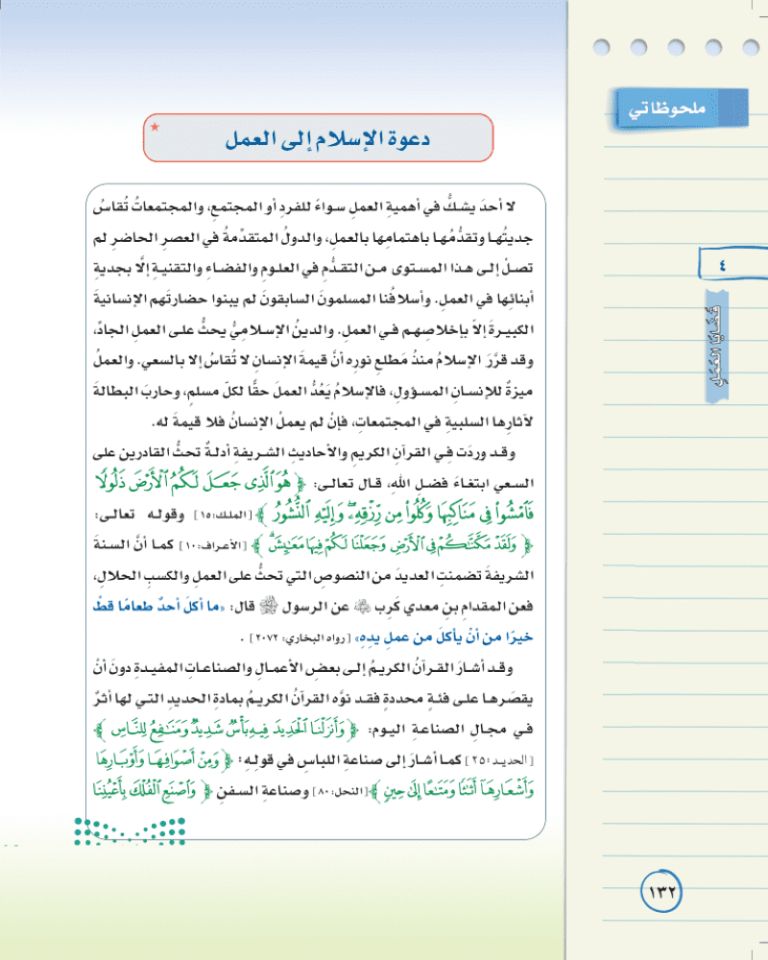 ملحوظاتي
٤
قضايا العمل
دعوة الإسلام إلى العمل *
لا أحدَ يشكُّ في أهميةِ العملِ سواءً للفردِ أو المجتمعِ، والمجتمعاتُ تُقاسُ
جديتُها وتقدُّمُها باهتمامِها بالعملِ، والدولُ المتقدِّمةُ في العصرِ الحاضرِ لم
تصلْ إلى هذا المستوى من التقدُّمِ في العلومِ والفضاءِ والتقنيةِ إلَّا بجديةِ
أبنائِها في العملِ. وأسلافُنا المسلمونَ السابقونَ لم يبنوا حضارتَهم الإنسانيةَ
الكبيرةَ إلاّ بإخلاصِهم في العملِ. والدينُ الإسلاميُّ يحثُّ على العملِ الجادِّ،
وقد قرَّرَ الإسلامُ منذُ مَطلعِ نورِه أنَّ قيمةَ الإنسانِ لا تُقاسُ إلا بالسعي. والعملُ
ميزةٌ للإنسانِ المسؤولِ، فالإسلامُ يَعُدُّ العملَ حقًّا لكلّ مسلمٍ، وحاربَ البطالةَ
لآثارِها السلبيةِ في المجتمعاتِ، فإنْ لم يعملْ الإنسانُ فلا قيمةَ له.
وقد وردَت في القرآنِ الكريمِ والأحاديثِ الشريفةِ أدلةٌ تحثُّ القادرين على
السعي ابتغاءَ فضلِ اللهِ، قال تعالى: ﴿ هُوَ ٱلَّذِى جَعَلَ لَكُمُ ٱلْأَرْضَ ذَلُولًا
فَٱمْشُوا۟ فِى مَنَاكِبِهَا وَكُلُوا۟ مِن رِّزْقِهِۦ وَإِلَيْهِ ٱلنُّشُورُ ﴾ [الملك:١٥] وقوله تعالى:
﴿ وَلَقَدْ مَكَّنَّـٰكُمْ فِى ٱلْأَرْضِ وَجَعَلْنَا لَكُمْ فِيهَا مَعَـٰيِشَ ﴾ [الأعراف:١٠] كما أنَّ السنةَ
الشريفةَ تضمنتِ العديدَ من النصوصِ التي تحثُّ على العملِ والكسبِ الحلالِ،
فعن المقدامِ بنِ معدي كَرِب ﷺ عن الرسول ﷺ قال: «ما أكلَ أحدٌ طعامًا قطُّ
خيرًا من أنْ يأكلَ من عملِ يدِهِ» [رواه البخاري: ٢٠٧٢] .
وقد أشارَ القرآنُ الكريمُ إلى بعضِ الأعمالِ والصناعاتِ المفيدةِ دونَ أنْ
يقصَرها على فئةٍ محددةٍ فقد نوَّه القرآنُ الكريمُ بمادةِ الحديدِ التي لها أثرٌ
في مجالِ الصناعةِ اليوم: ﴿ وَأَنزَلْنَا ٱلْحَدِيدَ فِيهِ بَأْسٌ شَدِيدٌ وَمَنَـٰفِعُ لِلنَّاسِ ﴾
[الحديد:٢٥] كما أشارَ إلى صناعةِ اللباسِ في قولِهِ: ﴿ وَمِنْ أَصْوَافِهَا وَأَوْبَارِهَا
وَأَشْعَارِهَآ أَثَـٰثًا وَمَتَـٰعًا إِلَىٰ حِينٍ ﴾ [النحل:٨٠] وصناعةِ السفنِ ﴿ وَٱصْنَعِ ٱلْفُلْكَ بِأَعْيُنِنَا
١٣٢